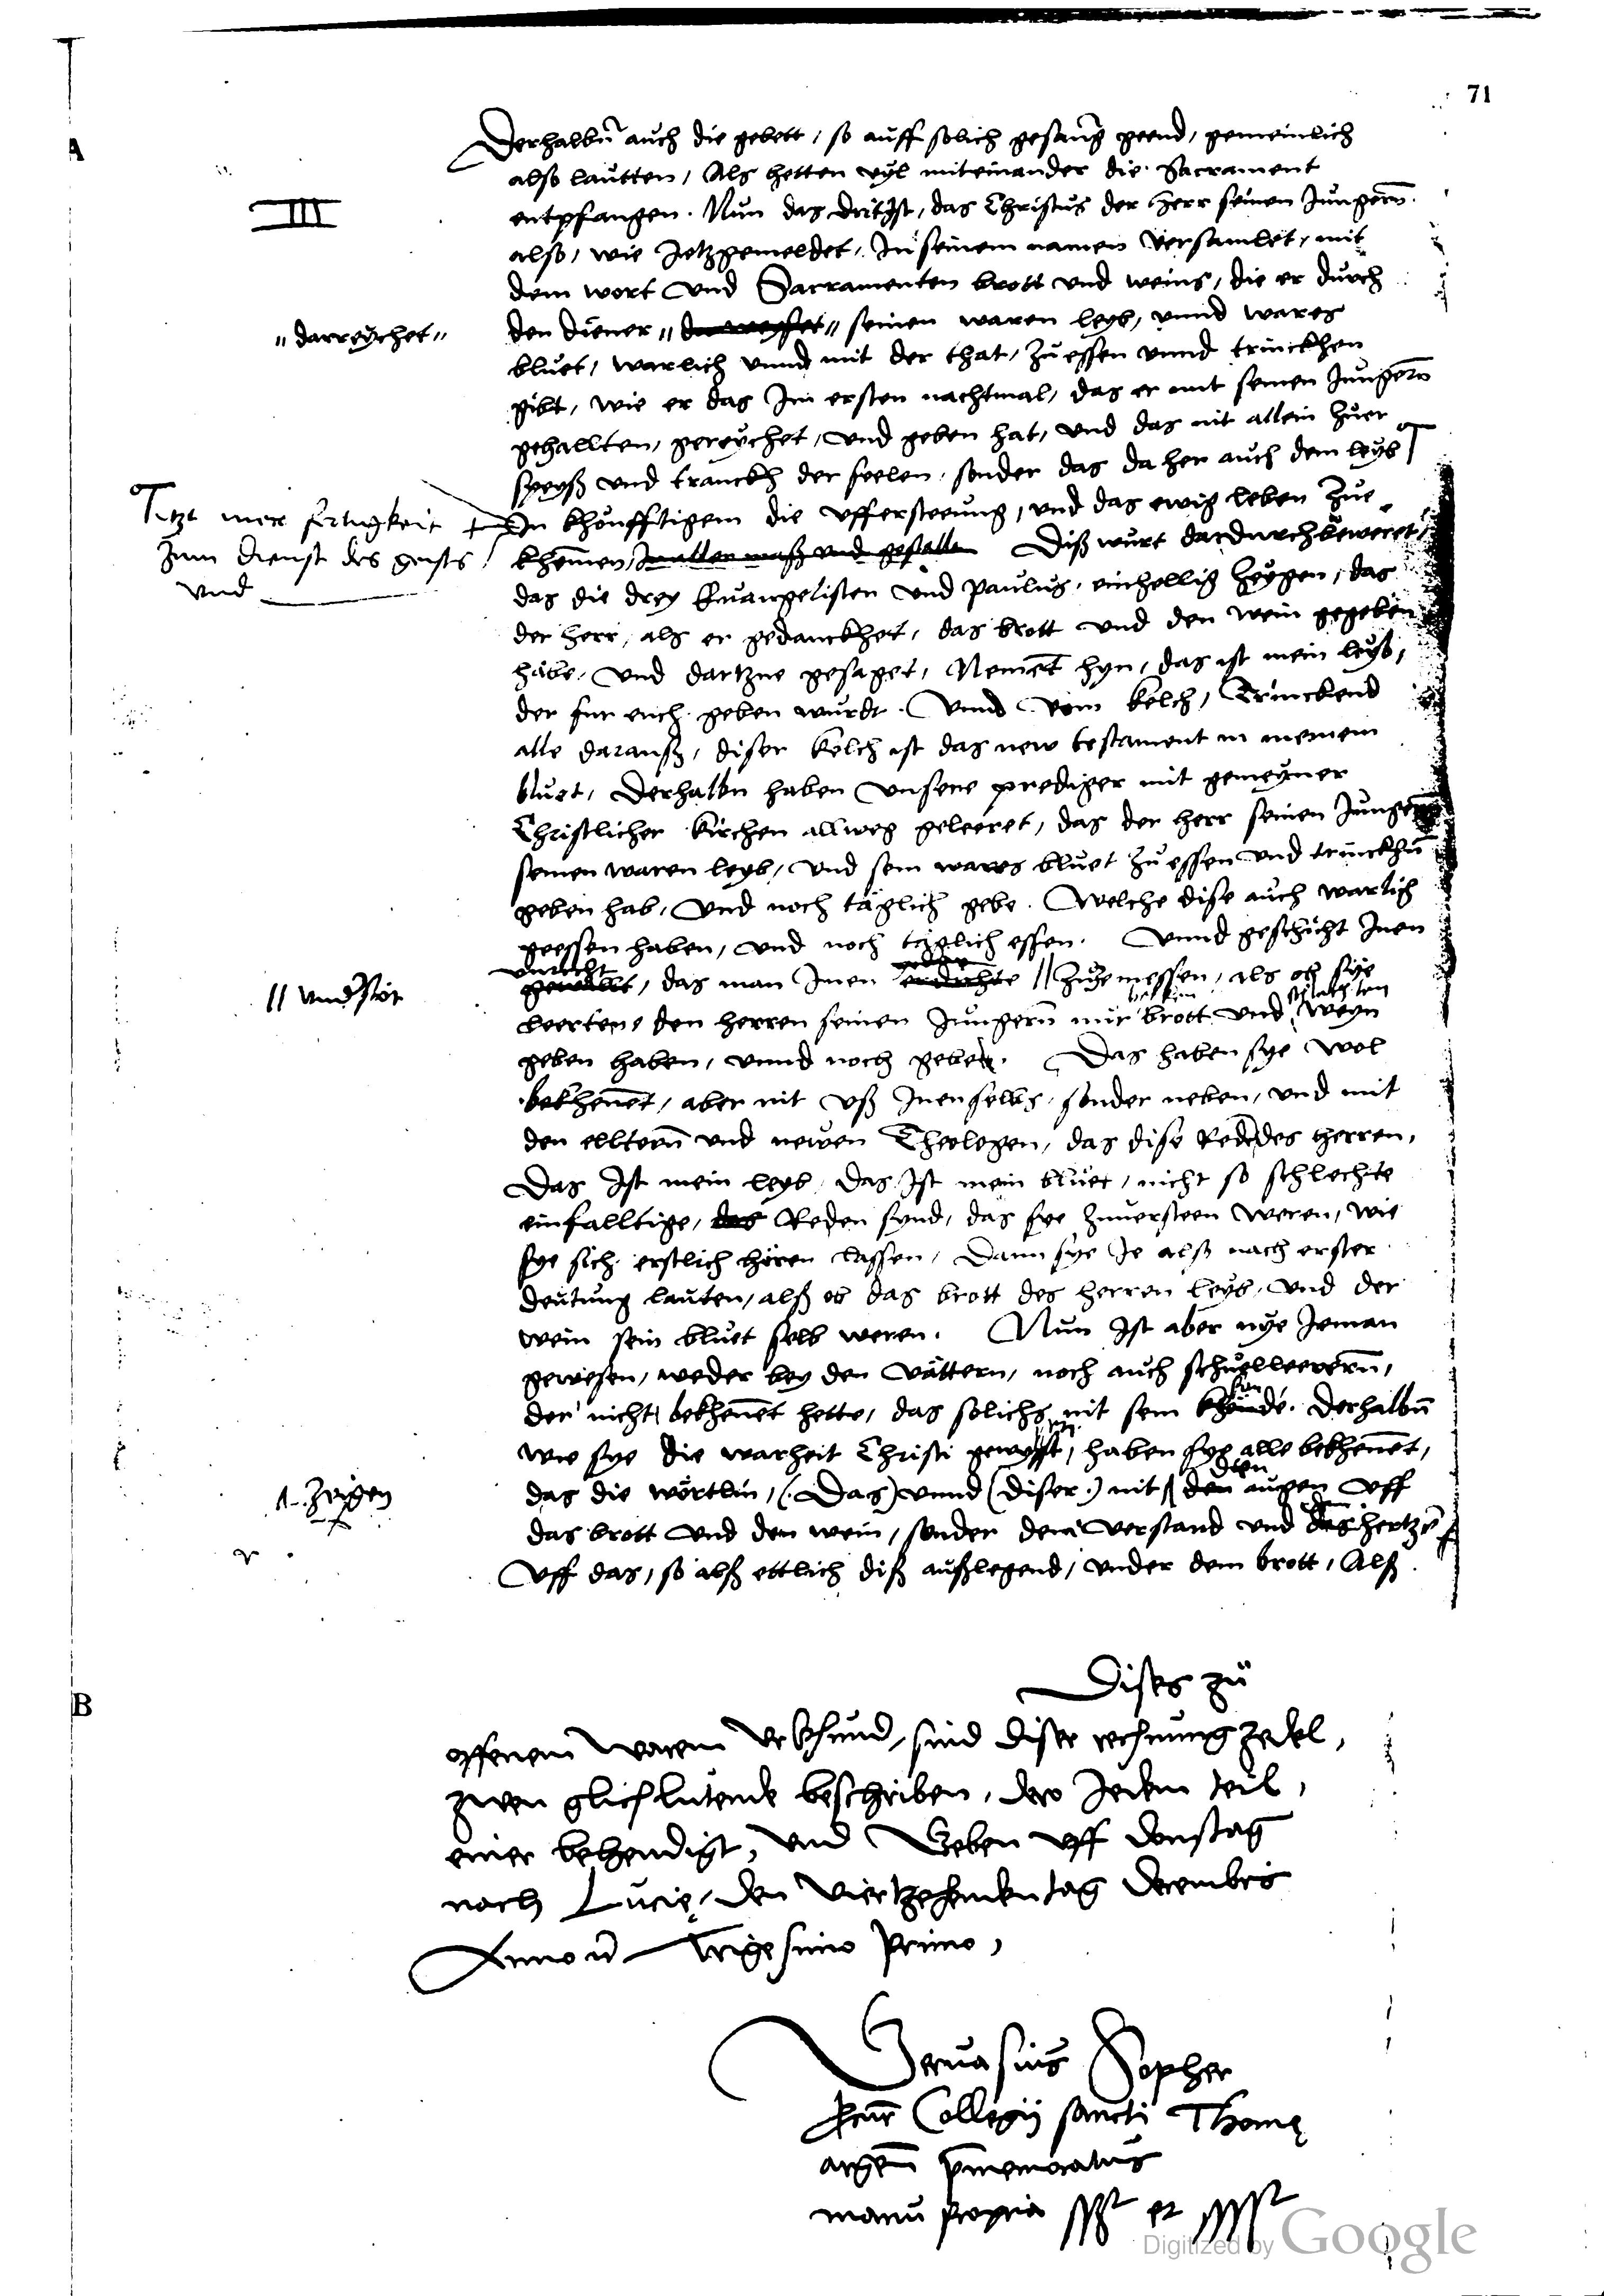 71
A
Derhalbn auch die gebett, so auff solich gesang geend, gemeinlich
also lautten, Als hetten vyl miteinander die Sacrament
III
entpfangen. Nun das drit Ist, das Christus der Herr seinen Jungern
also, wie Jetzgemeldet, In seinem namen versamlet, mit
dem wort vnd Sacramenten brott vnd weins, die er durch
"darreychet"
den diener " " seinen waren leyb, vnnd wares
bluet, warlich vnnd mit der that, zu essen vnnd trinckhen
gibt, wie er das Im ersten nachtmal, das er mit seinen Jungern
gehallten, gereychet, vnd geben hat, vnd das nit allein zuer
speyß vnd tranckh der seelen, sonder das da her auch dem leyb
Jtzt mer fertigkeit
zum dienst des geists
vnd
In khonfftigem die vffersteeung, vnd das ewig leben zue
khemen, In allen maß vnd gestallt Diß wurt dardurch beweret,
das die drey Euangelisten vnd Paulus einhellig zeygen, das
der herr, als er gedanckhet, das brott vnd den wein gegeben
habe, vnd dartzue gesaget, Nement hyn, das ist mein leyb,
der fur euch geben wurdt. Vnnd vom kelch, Trinckend
alle darauß, diser kelch ist das new testament in meinem
bluet, Derhalbn haben vnsere prediger mit gemeyner
Christlicher kirchen allweg geleeret, das der herr seinen Jungern
seinen waren leyb, vnd sein wares bluet zu essen vnd trinckhn
geben hab, vnd noch täglich gebe. Welche dise auch warlich
geessen haben, vnd noch täglich essen. Vnnd geschicht Inen
vnrecht
gewallt, das man Inen erdichte // zuzemessen, als ob sye
leerten, den herren seinen Jungern nur becken brott vnd schlechten weyn
geben haben, vnnd noch geben. Das haben sye wol
bekhenet, aber nit vß Inen selbs, sonder neben, vnd mit
den elltern vnd newen Theologen, das dise Rede des herren,
Das Ist mein leyb, das Ist mein bluet, nicht so schlechte
einfalltige, das Reden synd, das sye zuuersteen weren, wie
sye sich erstlich hören lassen, Dann sye Je alß nach erster
deutung lauten, alß ob das brott des herren leyb, vnd der
wein sein bluet selb weren. Nun Ist aber nye Jeman
gewesen, weder bey den vättern, noch auch schuelleerern,
der nicht bekhenet hette, das solichs nit sein khönde. Derhalbn
wie sye die warheit Christi gewyßt, haben sye alle bekhenet,
zeigen
das die wörtlin, (Das) vnnd (diser) nit den augen vff
das brott vnd den wein, sonder dem verstand vnd des hertzen
vff das, so alß ettlich diß außlegend, vnder dem brott, Alß
B
Dises zu
offenem warem vrkhund, sind diser rechnung zedel,
zwen glichlutende beschriben, dero Jedem teil,
einer behendigt, vnd Geben vff donstag
nach Lucie, den viertzehenden tag decembris
Anno etc Trigesimo Primo,
Geruasius Sopher
Collegij sancti Thome
argen prememoratus
manu propria
Digitized by Google